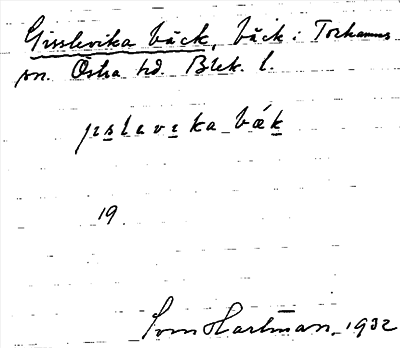 Gisslevika bäck, bäck i Torhamns
sn. Östra hd. Blek. l.
jislevika bäk
19.
Sven Hartman, 1932